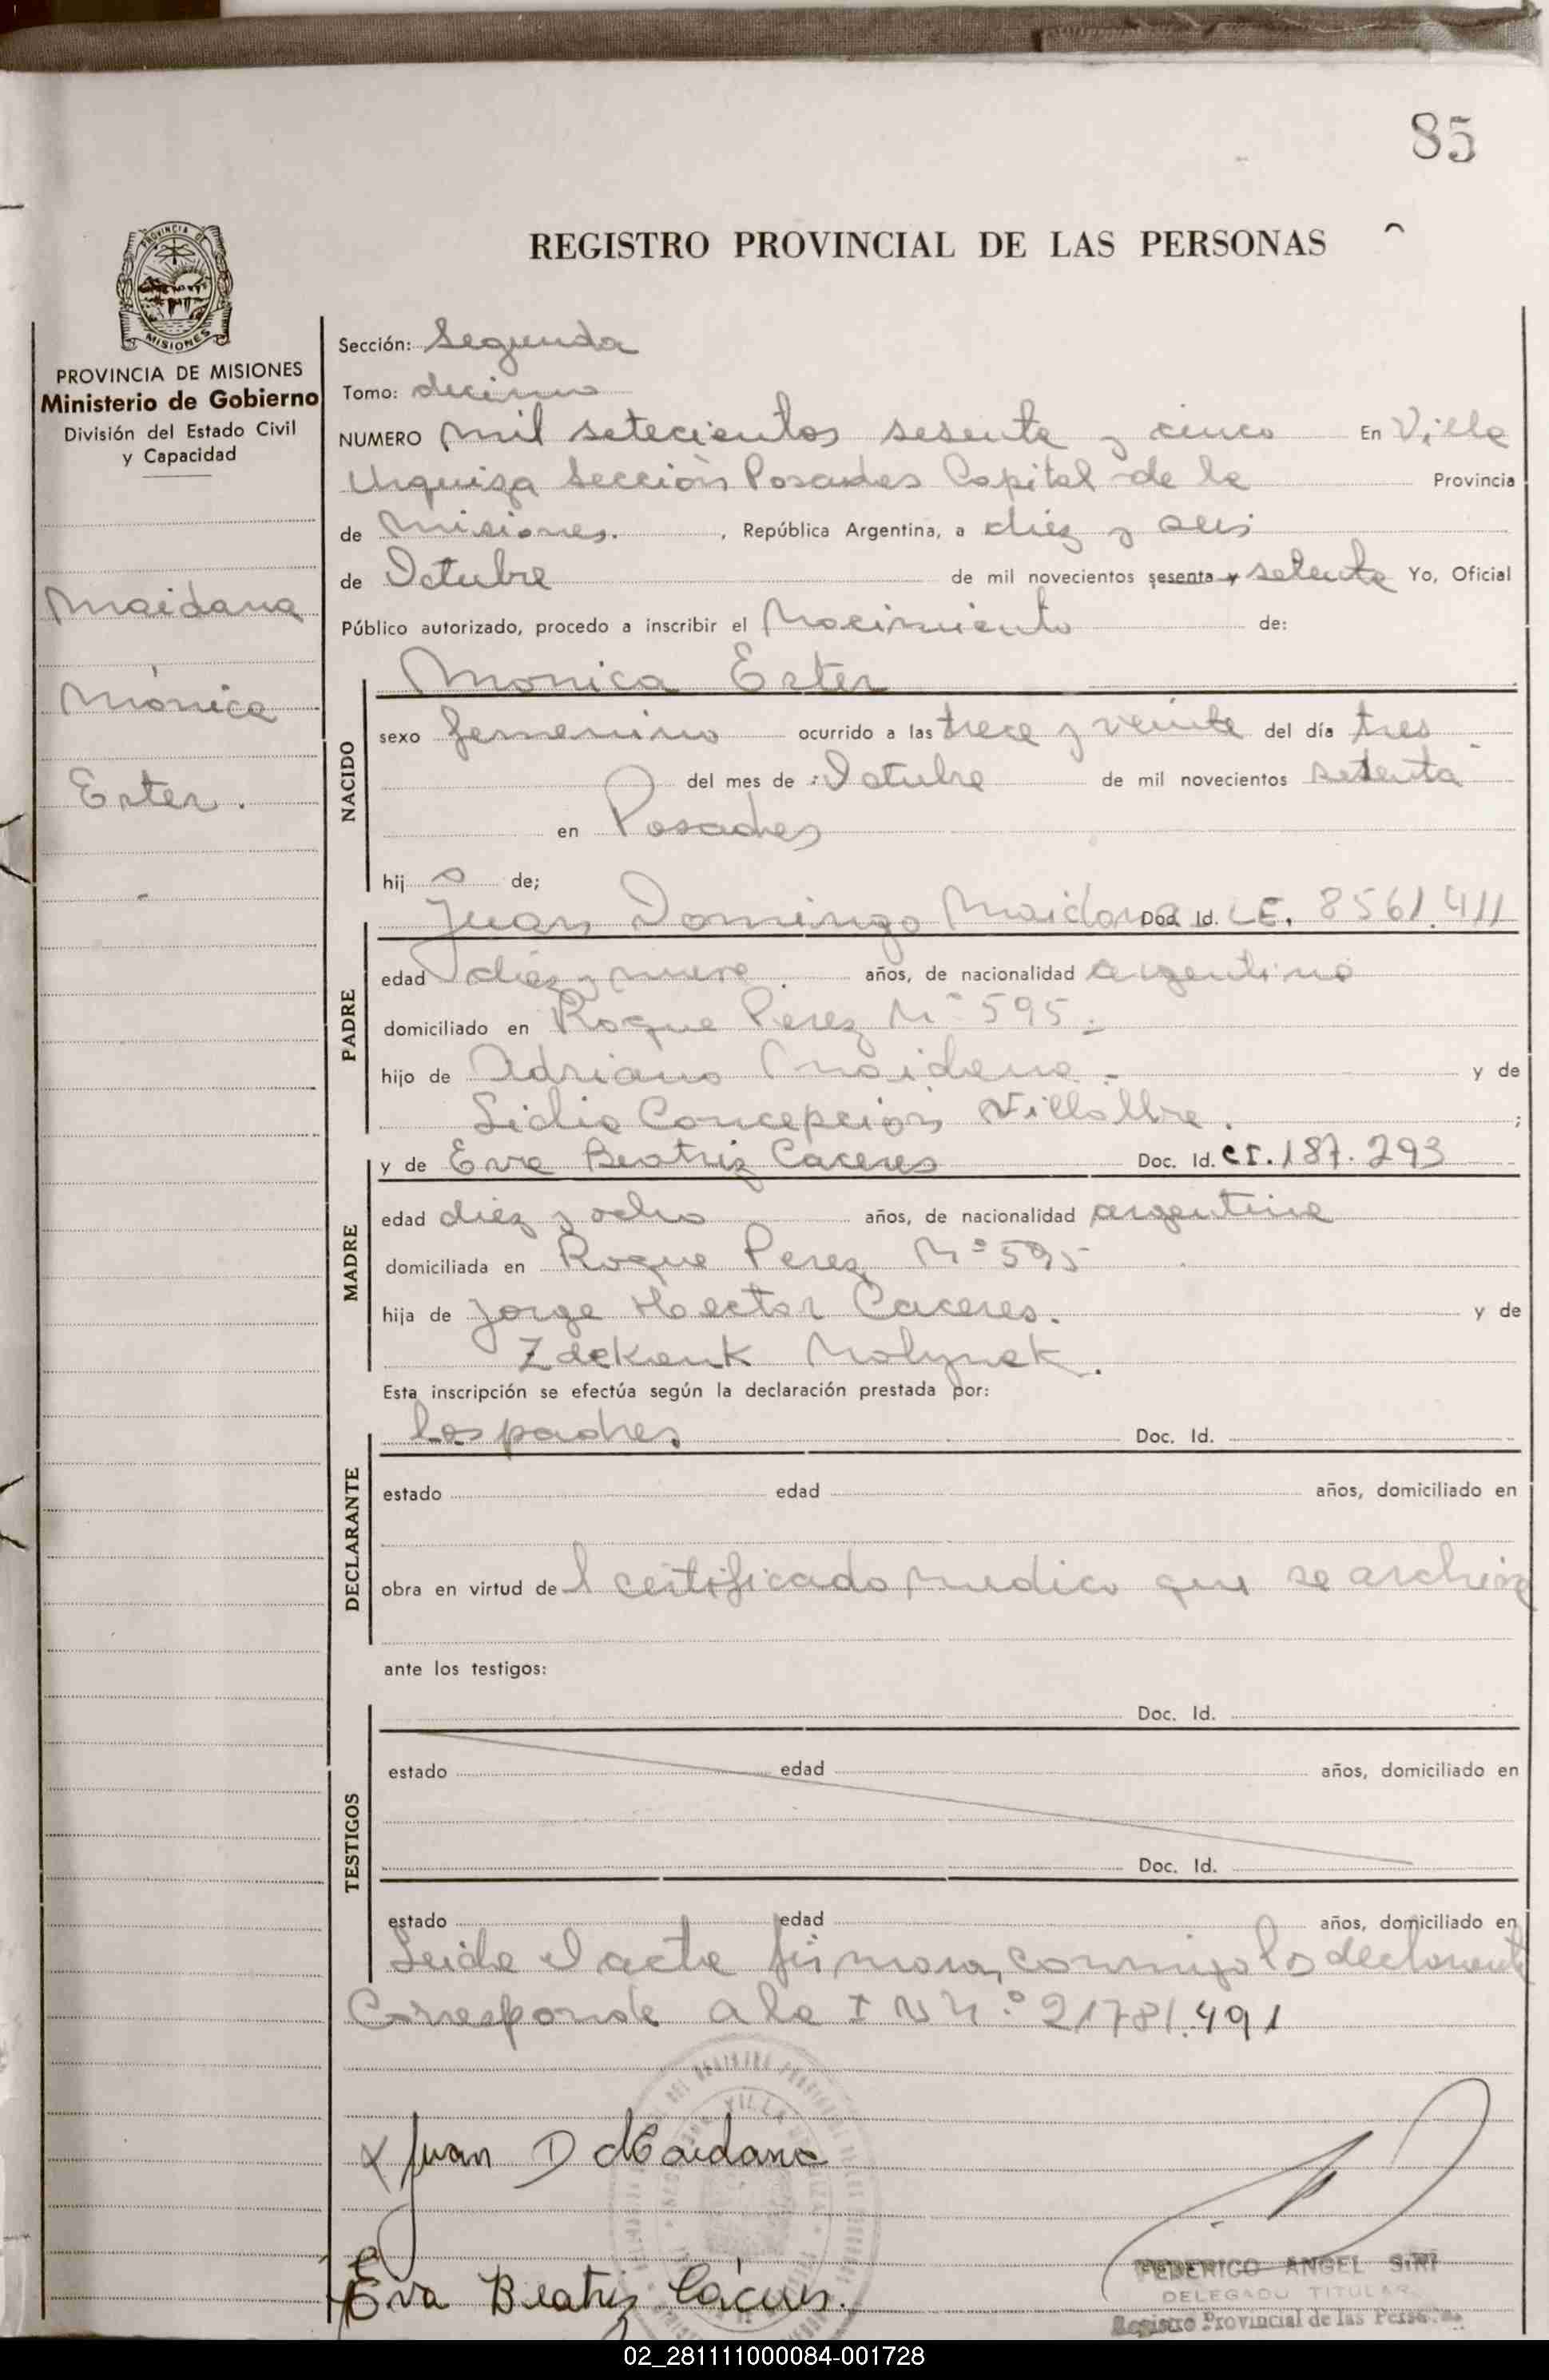 85
REGISTRO PROVINCIAL DE LAS PERSONAS
PROVINCIA DE
MISIONES
PROVINCIA DE MISIONES
Ministerio de Gobierno
División del Estado Civil
y Capacidad
Maidana
Mónica
Ester.
Sección: Segunda
Tomo: decimo
NUMERO mil setecientos sesenta y cinco En Villa
Urquiza Sección Posadas Capital de la Provincia
de Misiones. , República Argentina, a diez y seis
de Octubre de mil novecientos sesenta y setenta Yo, Oficial
Público autorizado, procedo a inscribir el Nacimiento de:
Monica Ester
NACIDO
sexo femenino ocurrido a las trece y veinte del día tres
del mes de Octubre de mil novecientos setenta
en Posadas
hij o de;
PADRE
Juan Domingo Maidana Doc. Id. L.E. 8561.411
edad diez y nueve años, de nacionalidad argentino
domiciliado en Roque Perez Nº 595.
hijo de Adriano Maidana y de
Lidia Concepción Villalba ;
MADRE
y de Eva Beatriz Caceres Doc. Id. CI. 187.293
edad diez y ocho años, de nacionalidad argentina
domiciliada en Roque Perez Nº 595
hija de Jorge Hector Caceres. y de
Zdekauk Molynek.
Esta inscripción se efectúa según la declaración prestada por:
DECLARANTE
Los padres Doc. Id.
estado edad años, domiciliado en
obra en virtud de l certificado medico que se archiva
ante los testigos:
TESTIGOS
Doc. Id.
estado edad años, domiciliado en
Doc. Id.
estado edad años, domiciliado en
Leida el acta firman conmigo los declarante
Corresponde a la I N Nº 21781.491
Juan D Maidana
Eva Beatriz Cáceres.
FEDERICO ANGEL SIRI
DELEGADO TITULAR
Registro Provincial de las Personas
02_281111000084-001728